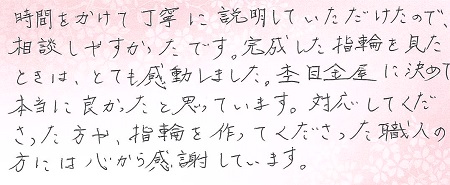 時間をかけて丁寧に説明していただけたので、
相談しやすかったです。完成した指輪を見た
ときは、とても感動しました。杢目金屋に決めて
本当に良かったと思っています。対応してくだ
さった方や、指輪を作ってくださった職人の
方には心から感謝しています。